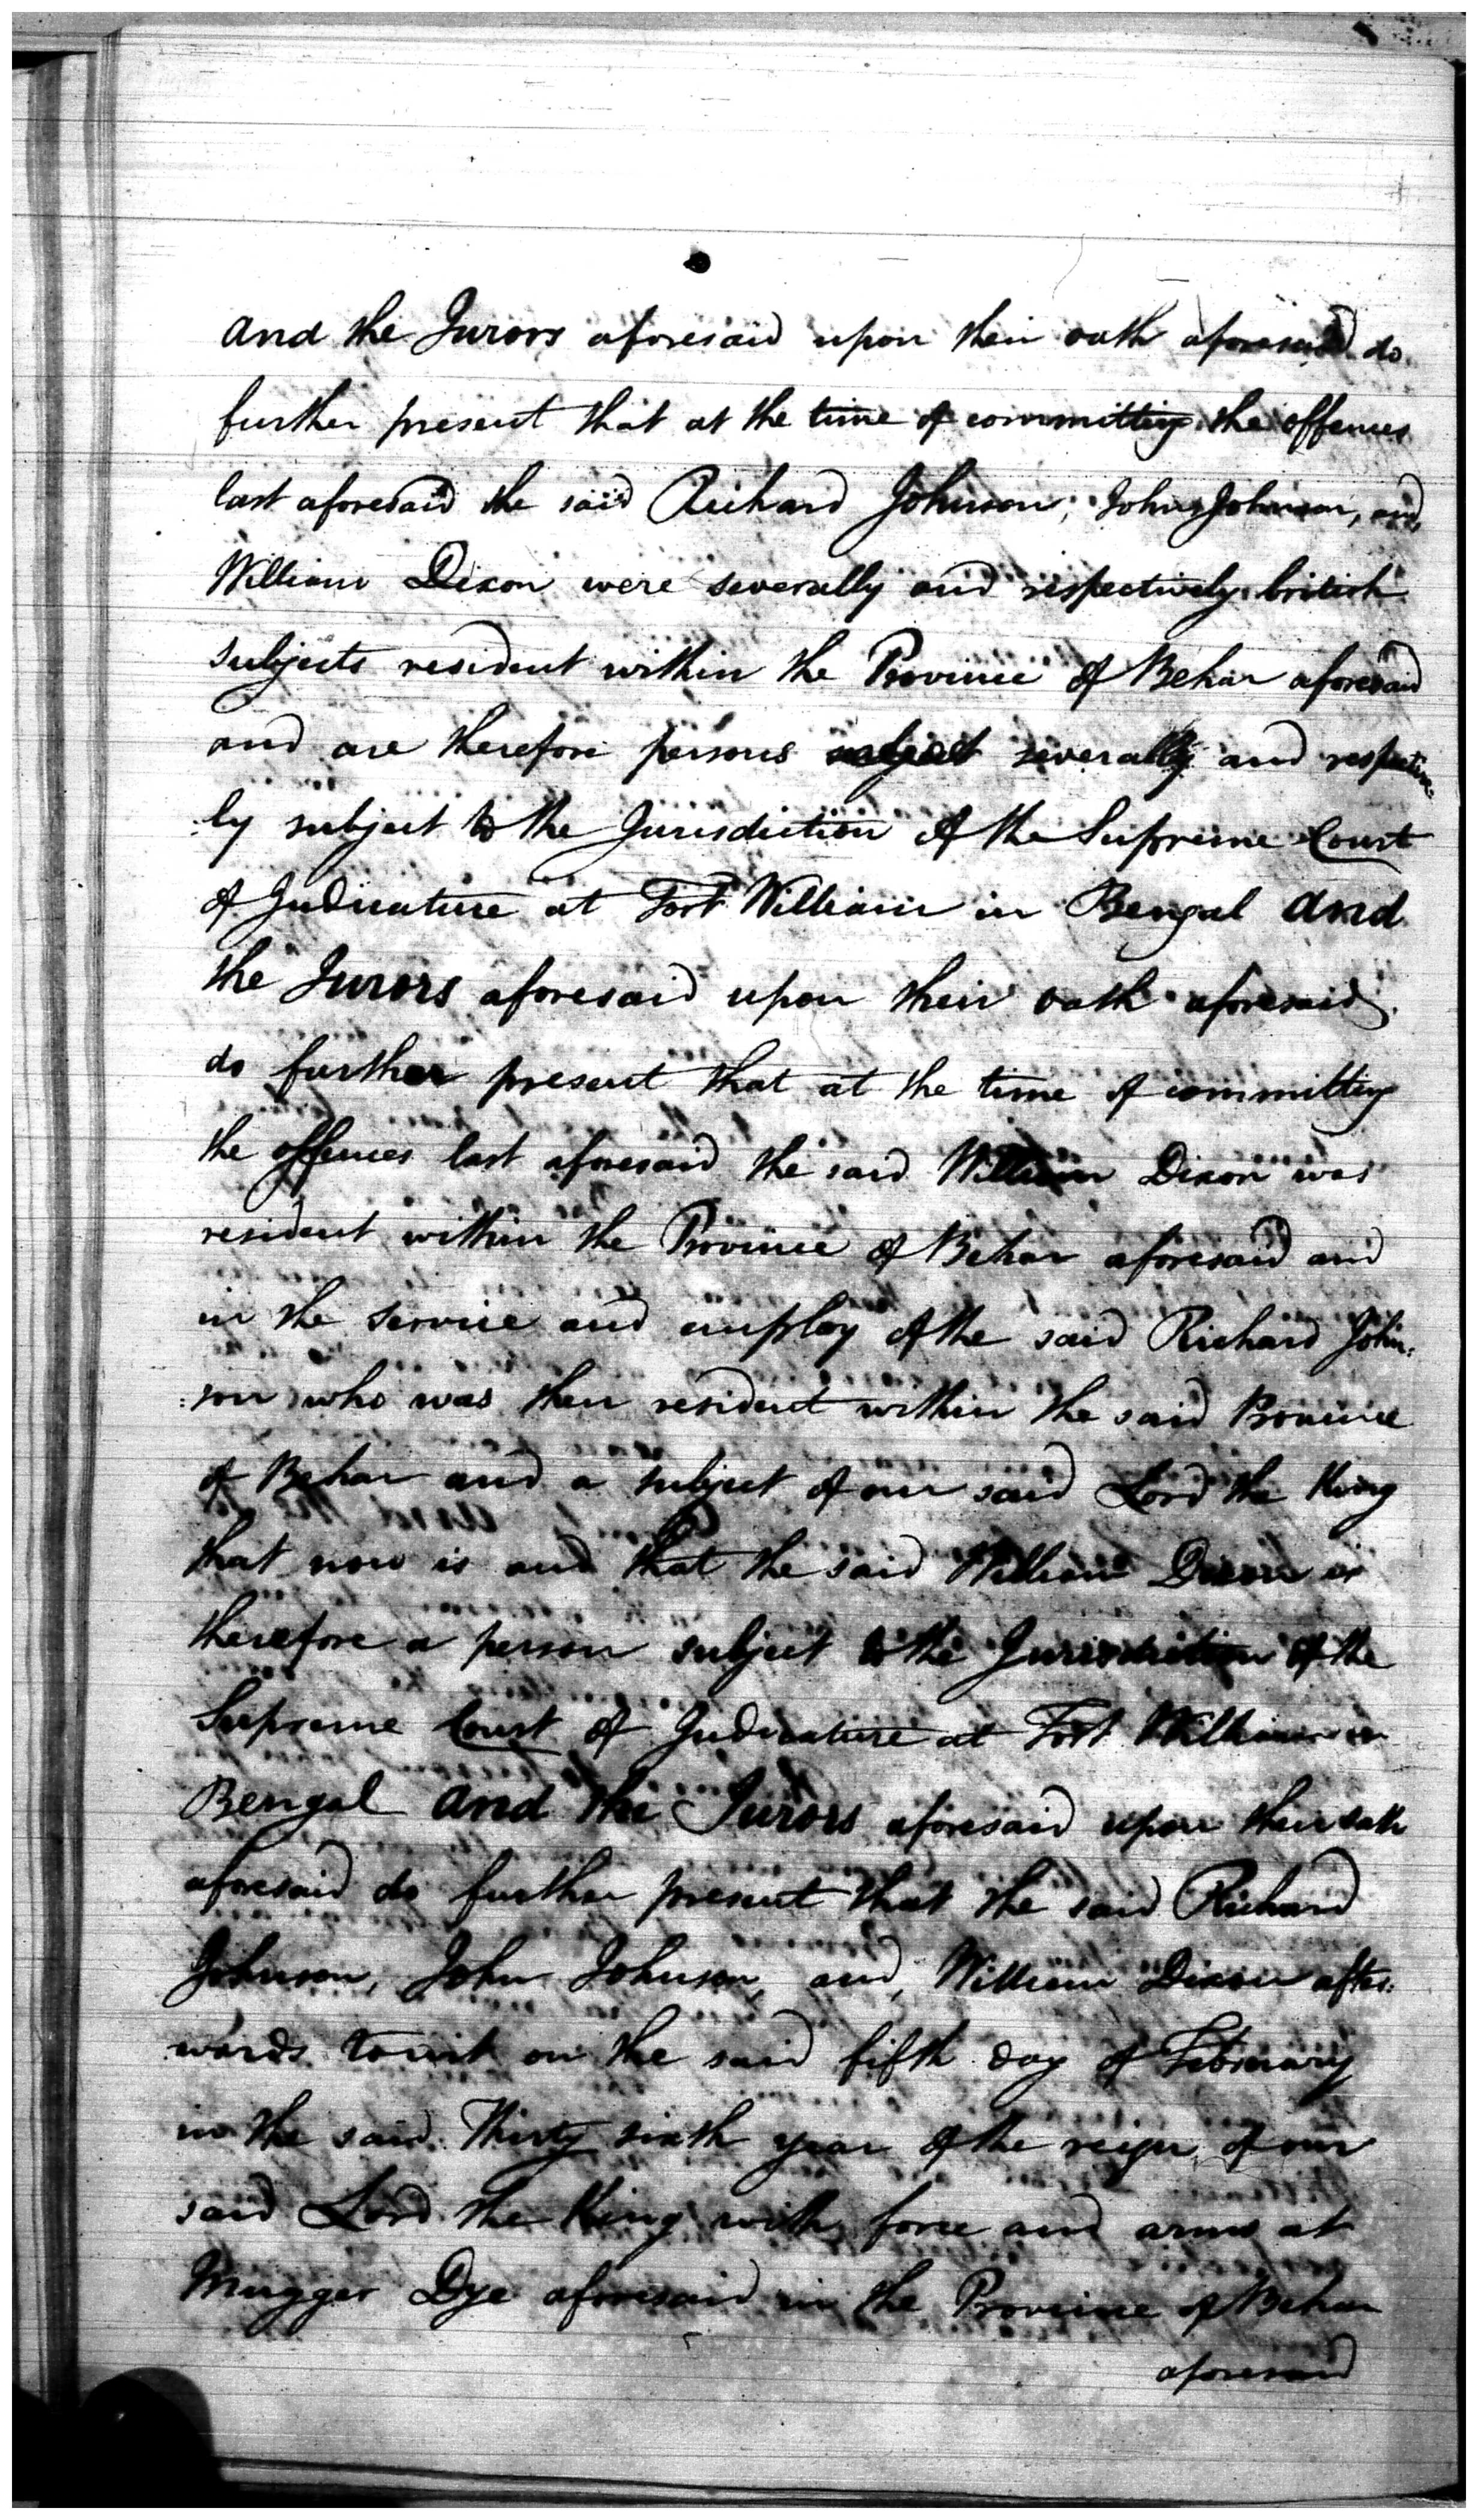 And the Jurors aforesaid upon their oath aforesaid do
further present that at the time of committing the offences
last aforesaid the said Richard Johnson, John Johnson, and
William Dixon were severally and respectively british
subjects resident within the Province of Behar aforesaid
and are therefore persons subject severally and respective=
:ly subject to the Jurisdiction of the Supreme Court
of Judicature at Fort William in Bengal And
the Jurors aforesaid upon their oath aforesaid
do further present that at the time of committing
the offences last aforesaid the said William Dixon was
resident within the Province of Behar aforesaid and
in the service and employ of the said Richard John:
:son who was then resident within the said Province
of Behar and a subject of our said Lord the King
that now is and that the said William Dixon is
therefore a person subject to the Jurisdiction of the
Supreme Court of Judicature at Fort William in
Bengal And the Jurors aforesaid upon their oath
aforesaid do further present that the said Richard
Johnson, John Johnson, and, William Dixon after:
wards towit on the said fifth day of February
in the said Thirty sixth year of the reign of our
said Lord the King with force and arms at
Mugger Dye aforesaid in the Province of Behar
aforesaid